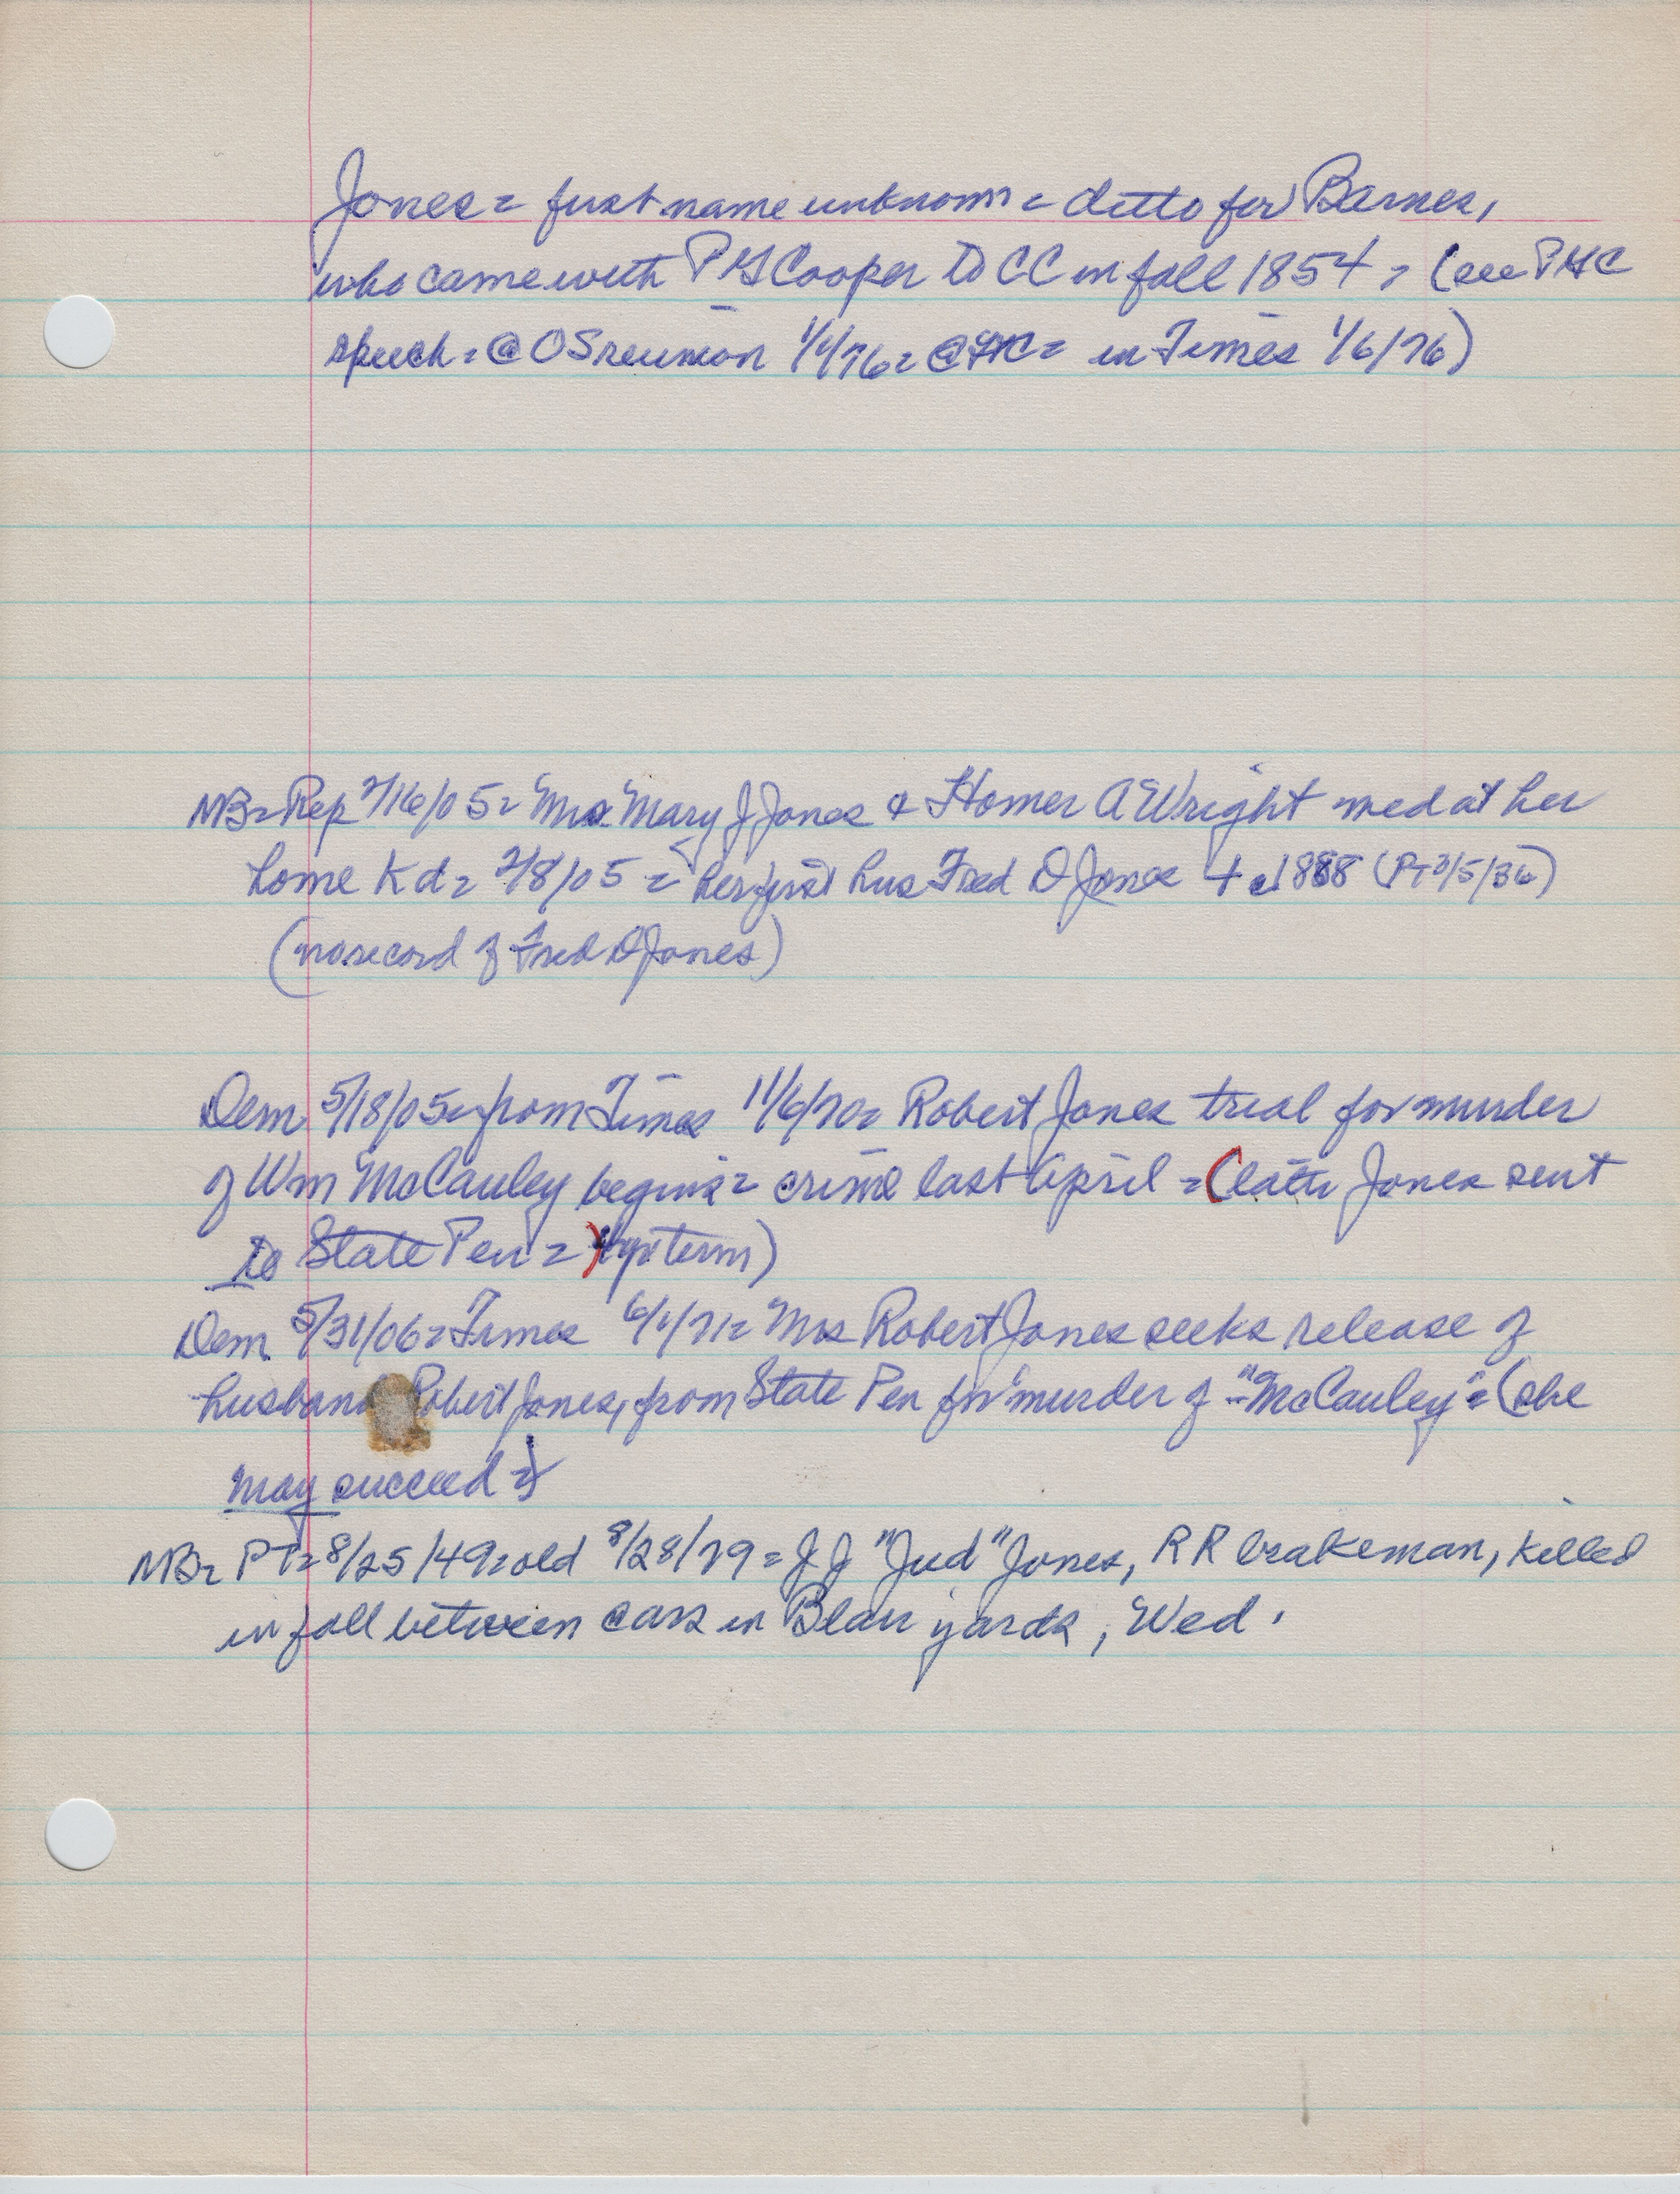 Jones = first name unknown = ditto for Barnes,
who came with P G Cooper to CC in fall 1854 = (see PGC
speech = @ OS reunion 1/1/76 = @ = in Times 1/6/76)
NB = Rep 2/16/05 = Mrs. Mary J Jones & Homer A Wright med at her
home Kd = 2/8/05 = her first hus Fred D Jones + d 1888 (PT 3/5/36)
(no record of Fred D Jones)
Dem 5/18/05 = from Times 11/6/70 = Robert Jones trial for murder
of Wm McCauley begins = crime last April = (later Jones sent
to State Pen = yr term)
Dem 5/31/06 = Times 6/1/71 = Mrs Robert Jones seeks release of
husband Robert Jones, from State Pen for murder of "McCauley" = (she
may succeed =)
NB = PT = 8/25/49 = old 8/28/79 = J J "Jud" Jones, RR brakeman, killed
in fall between cars in Blair yards, Wed.